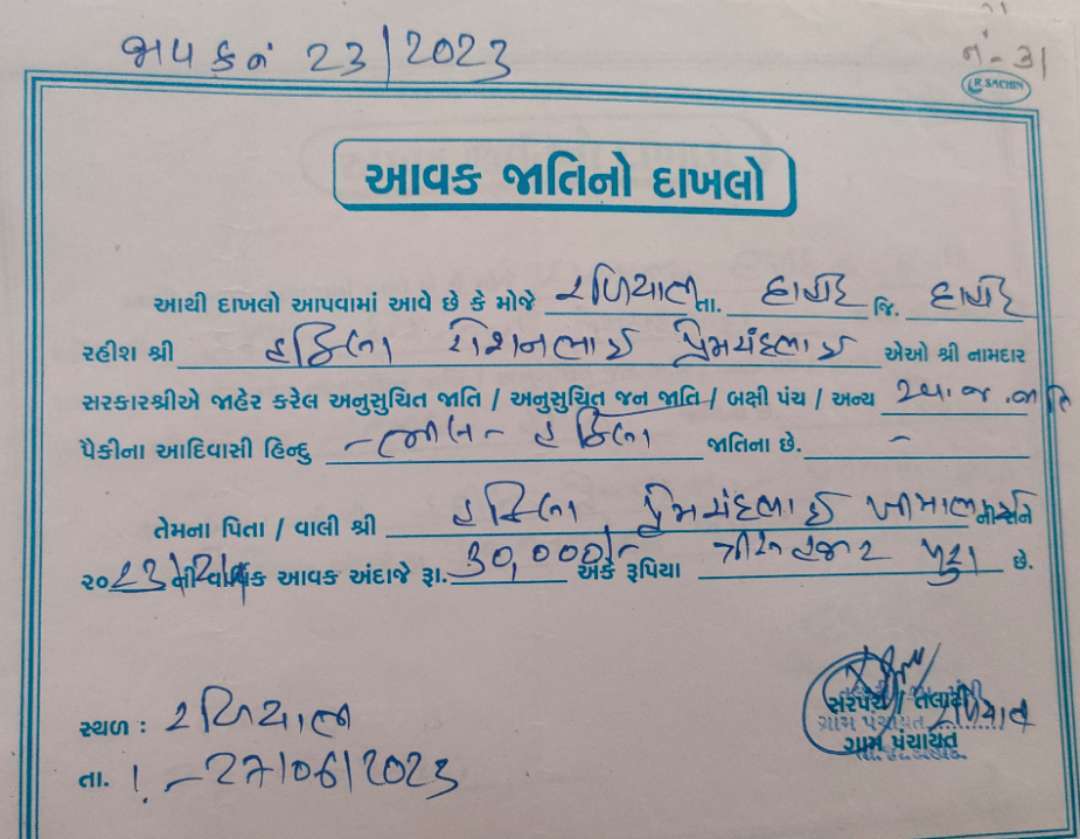 જાવક નં 23/2023
નં - 31
R SACHIN
આવક જાતિનો દાખલો
આથી દાખલો આપવામાં આવે છે કે મોજે રળિયાતી તા. દાહોદ જિ. દાહોદ
રહીશ શ્રી રોશનભાઈ પ્રેમચંદભાઈ એઓ શ્રી નામદાર
સરકારશ્રીએ જાહેર કરેલ અનુસુચિત જાતિ / અનુસુચિત જન જાતિ / બક્ષી પંચ / અન્ય અ.જ.જાતિ
પૈકીના આદિવાસી હિન્દુ - ભીલ - જાતિના છે. -
તેમના પિતા / વાલી શ્રી પ્રેમચંદભાઈ ની સને
૨૦23/24 ની વાર્ષિક આવક અંદાજે રૂા. 30,000/- અંકે રૂપિયા ત્રીસ હજાર પુરા છે.
સ્થળ :
તા. 27/06/2023
સરપંચ / તલાટી
ગ્રામ પંચાયત
ગ્રામ પંચાયત